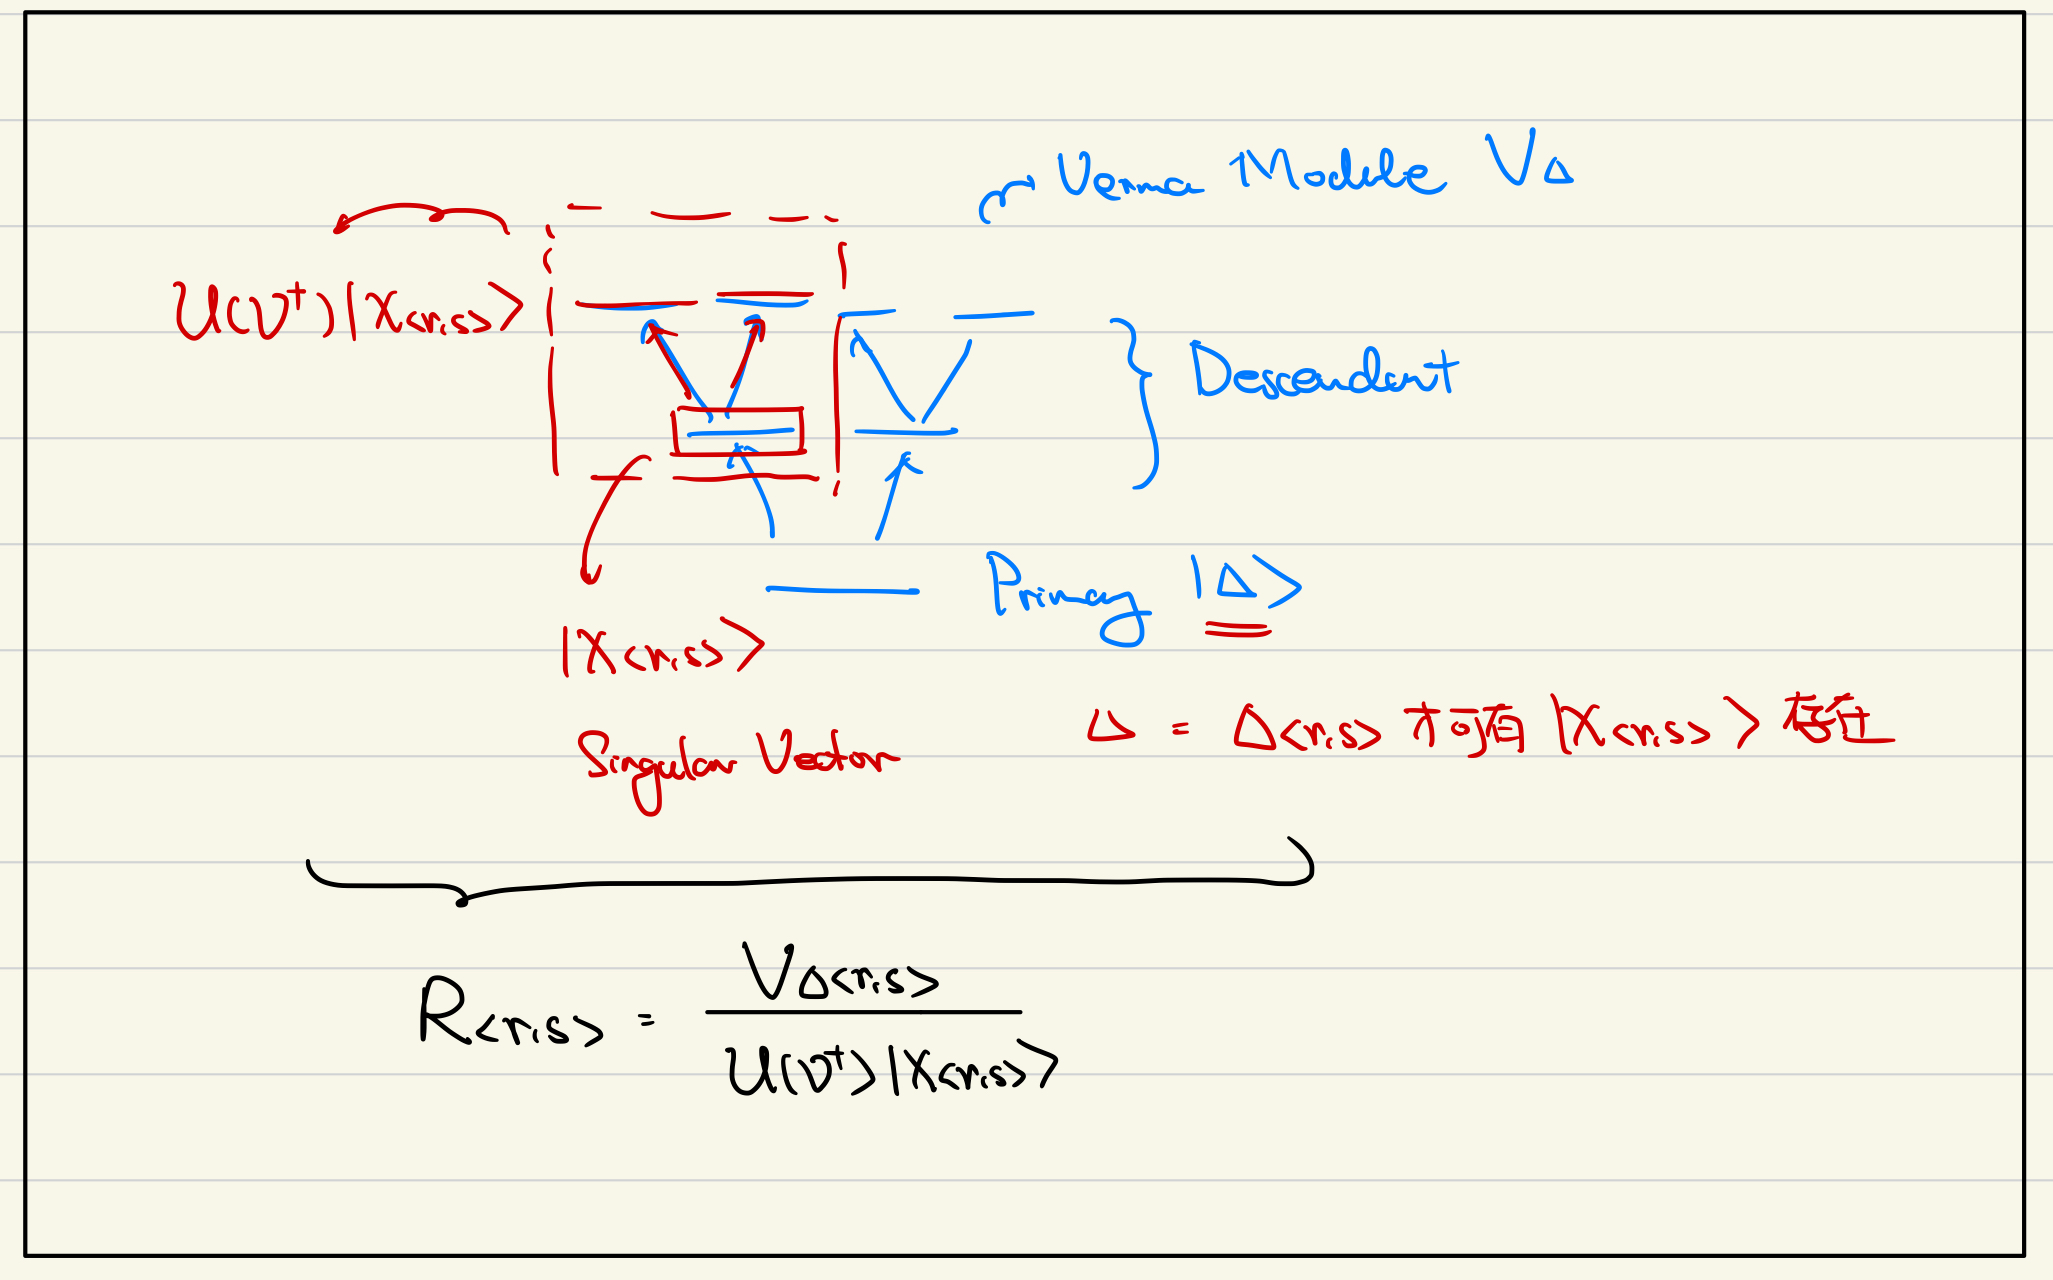 Verma Module V_Δ
U(V⁺)|χ<r,s>⟩
Descendant
Primary |Δ⟩
|χ<r,s>⟩
Singular Vector
Δ = Δ<r,s> 才可有 |χ<r,s>⟩ 存在
R<r,s> = V_Δ<r,s> / U(V⁺)|χ<r,s>⟩